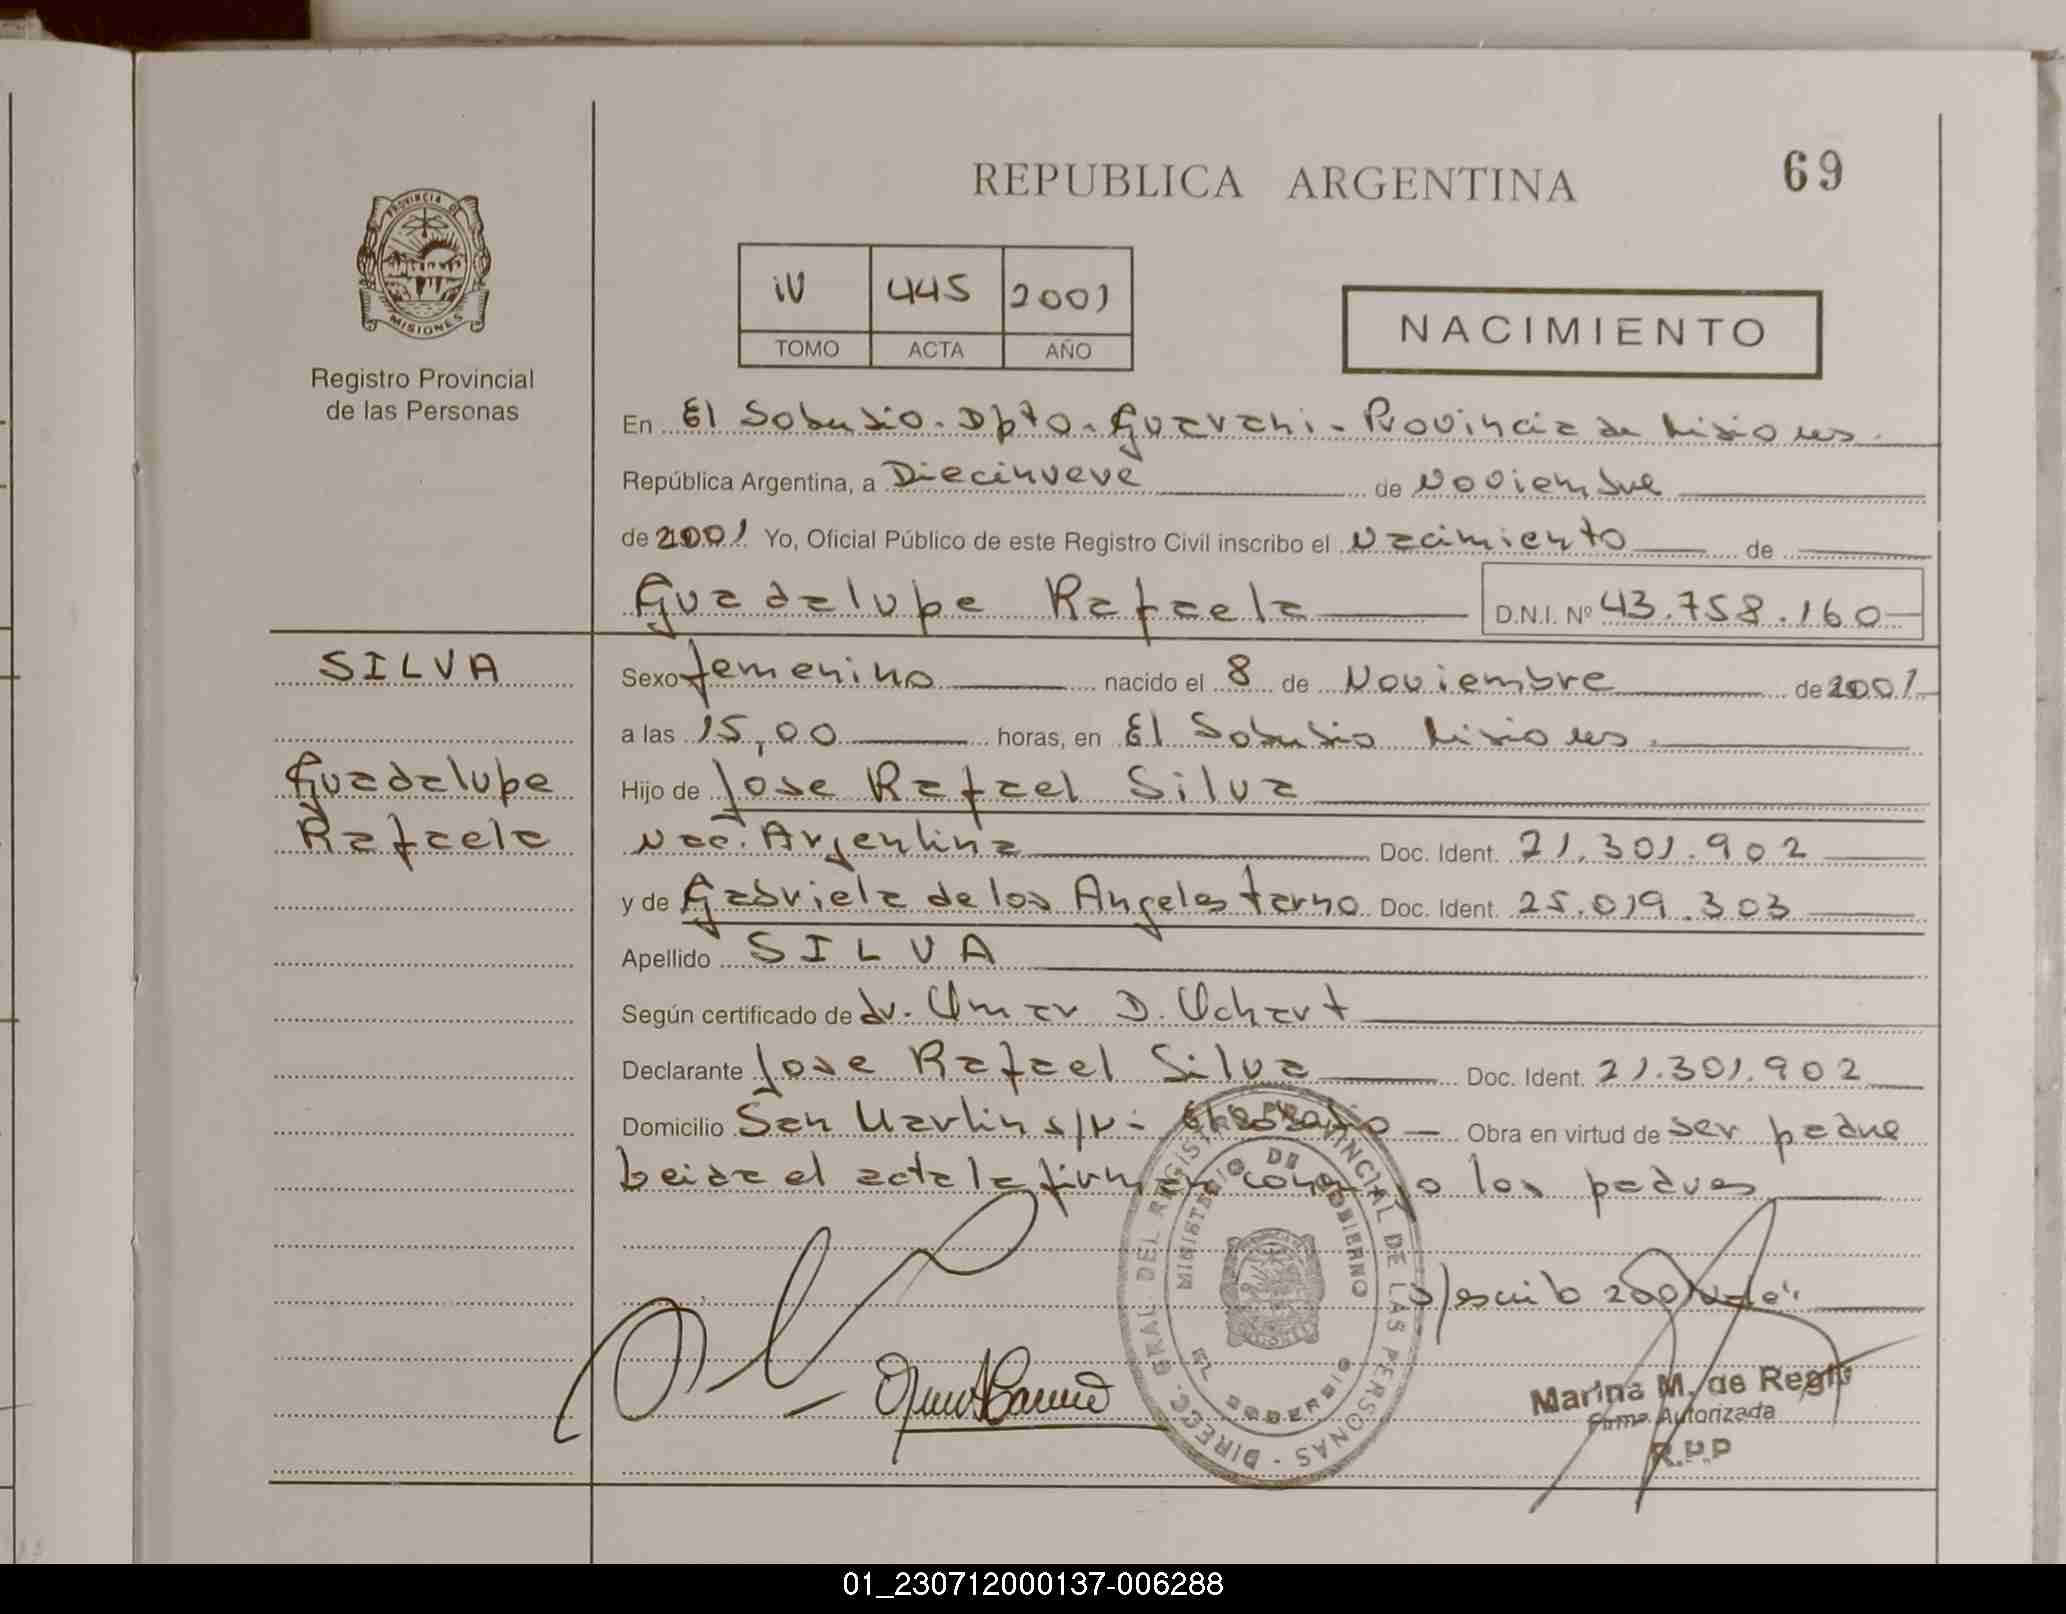 REPUBLICA ARGENTINA
69
PROVINCIA DE
MISIONES
Registro Provincial
de las Personas
iV 445 2001
TOMO ACTA AÑO
NACIMIENTO
En El Soberbio - Dpto - Guarani - Provincia de Misiones
República Argentina, a Diecinueve de Noviembre
de 2001 Yo, Oficial Público de este Registro Civil inscribo el Nacimiento de
Guadalupe Rafaela D.N.I. Nº 43.758.160
SILVA
Guadalupe
Rafaela
Sexo femenino nacido el 8 de Noviembre de 2001
a las 15,00 horas, en El Soberbio Misiones.
Hijo de Jose Rafael Silva
Nac. Argentina Doc. Ident. 21.301.902
y de Gabriela de los Angeles Doc. Ident. 25.019.303
Apellido SILVA
Según certificado de dr. Omar D.
Declarante Jose Rafael Silva Doc. Ident. 21.301.902
Domicilio San Martin s/n - El Soberbio Obra en virtud de ser padre
Leida el acta la firman conmigo los padres
DIREC. GRAL. DEL REGISTRO PROVINCIAL DE LAS PERSONAS
MINISTERIO DE GOBIERNO
EL SOBERBIO
Marina M. de Regis
Firma Autorizada
R.P.P
01_230712000137-006288